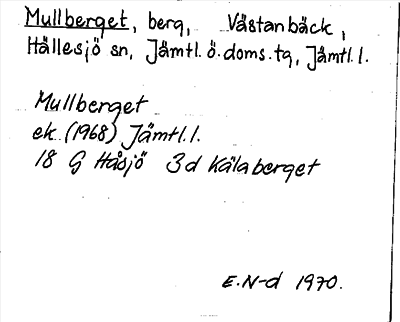 Mullberget, berg, Västanbäck,
Hällesjö sn, Jämtl. ö. doms. tg, Jämtl. l.
Mullberget
ek. (1968) Jämtl. l.
18 G Håsjö 3d Kälaberget
E.N-d 1970.